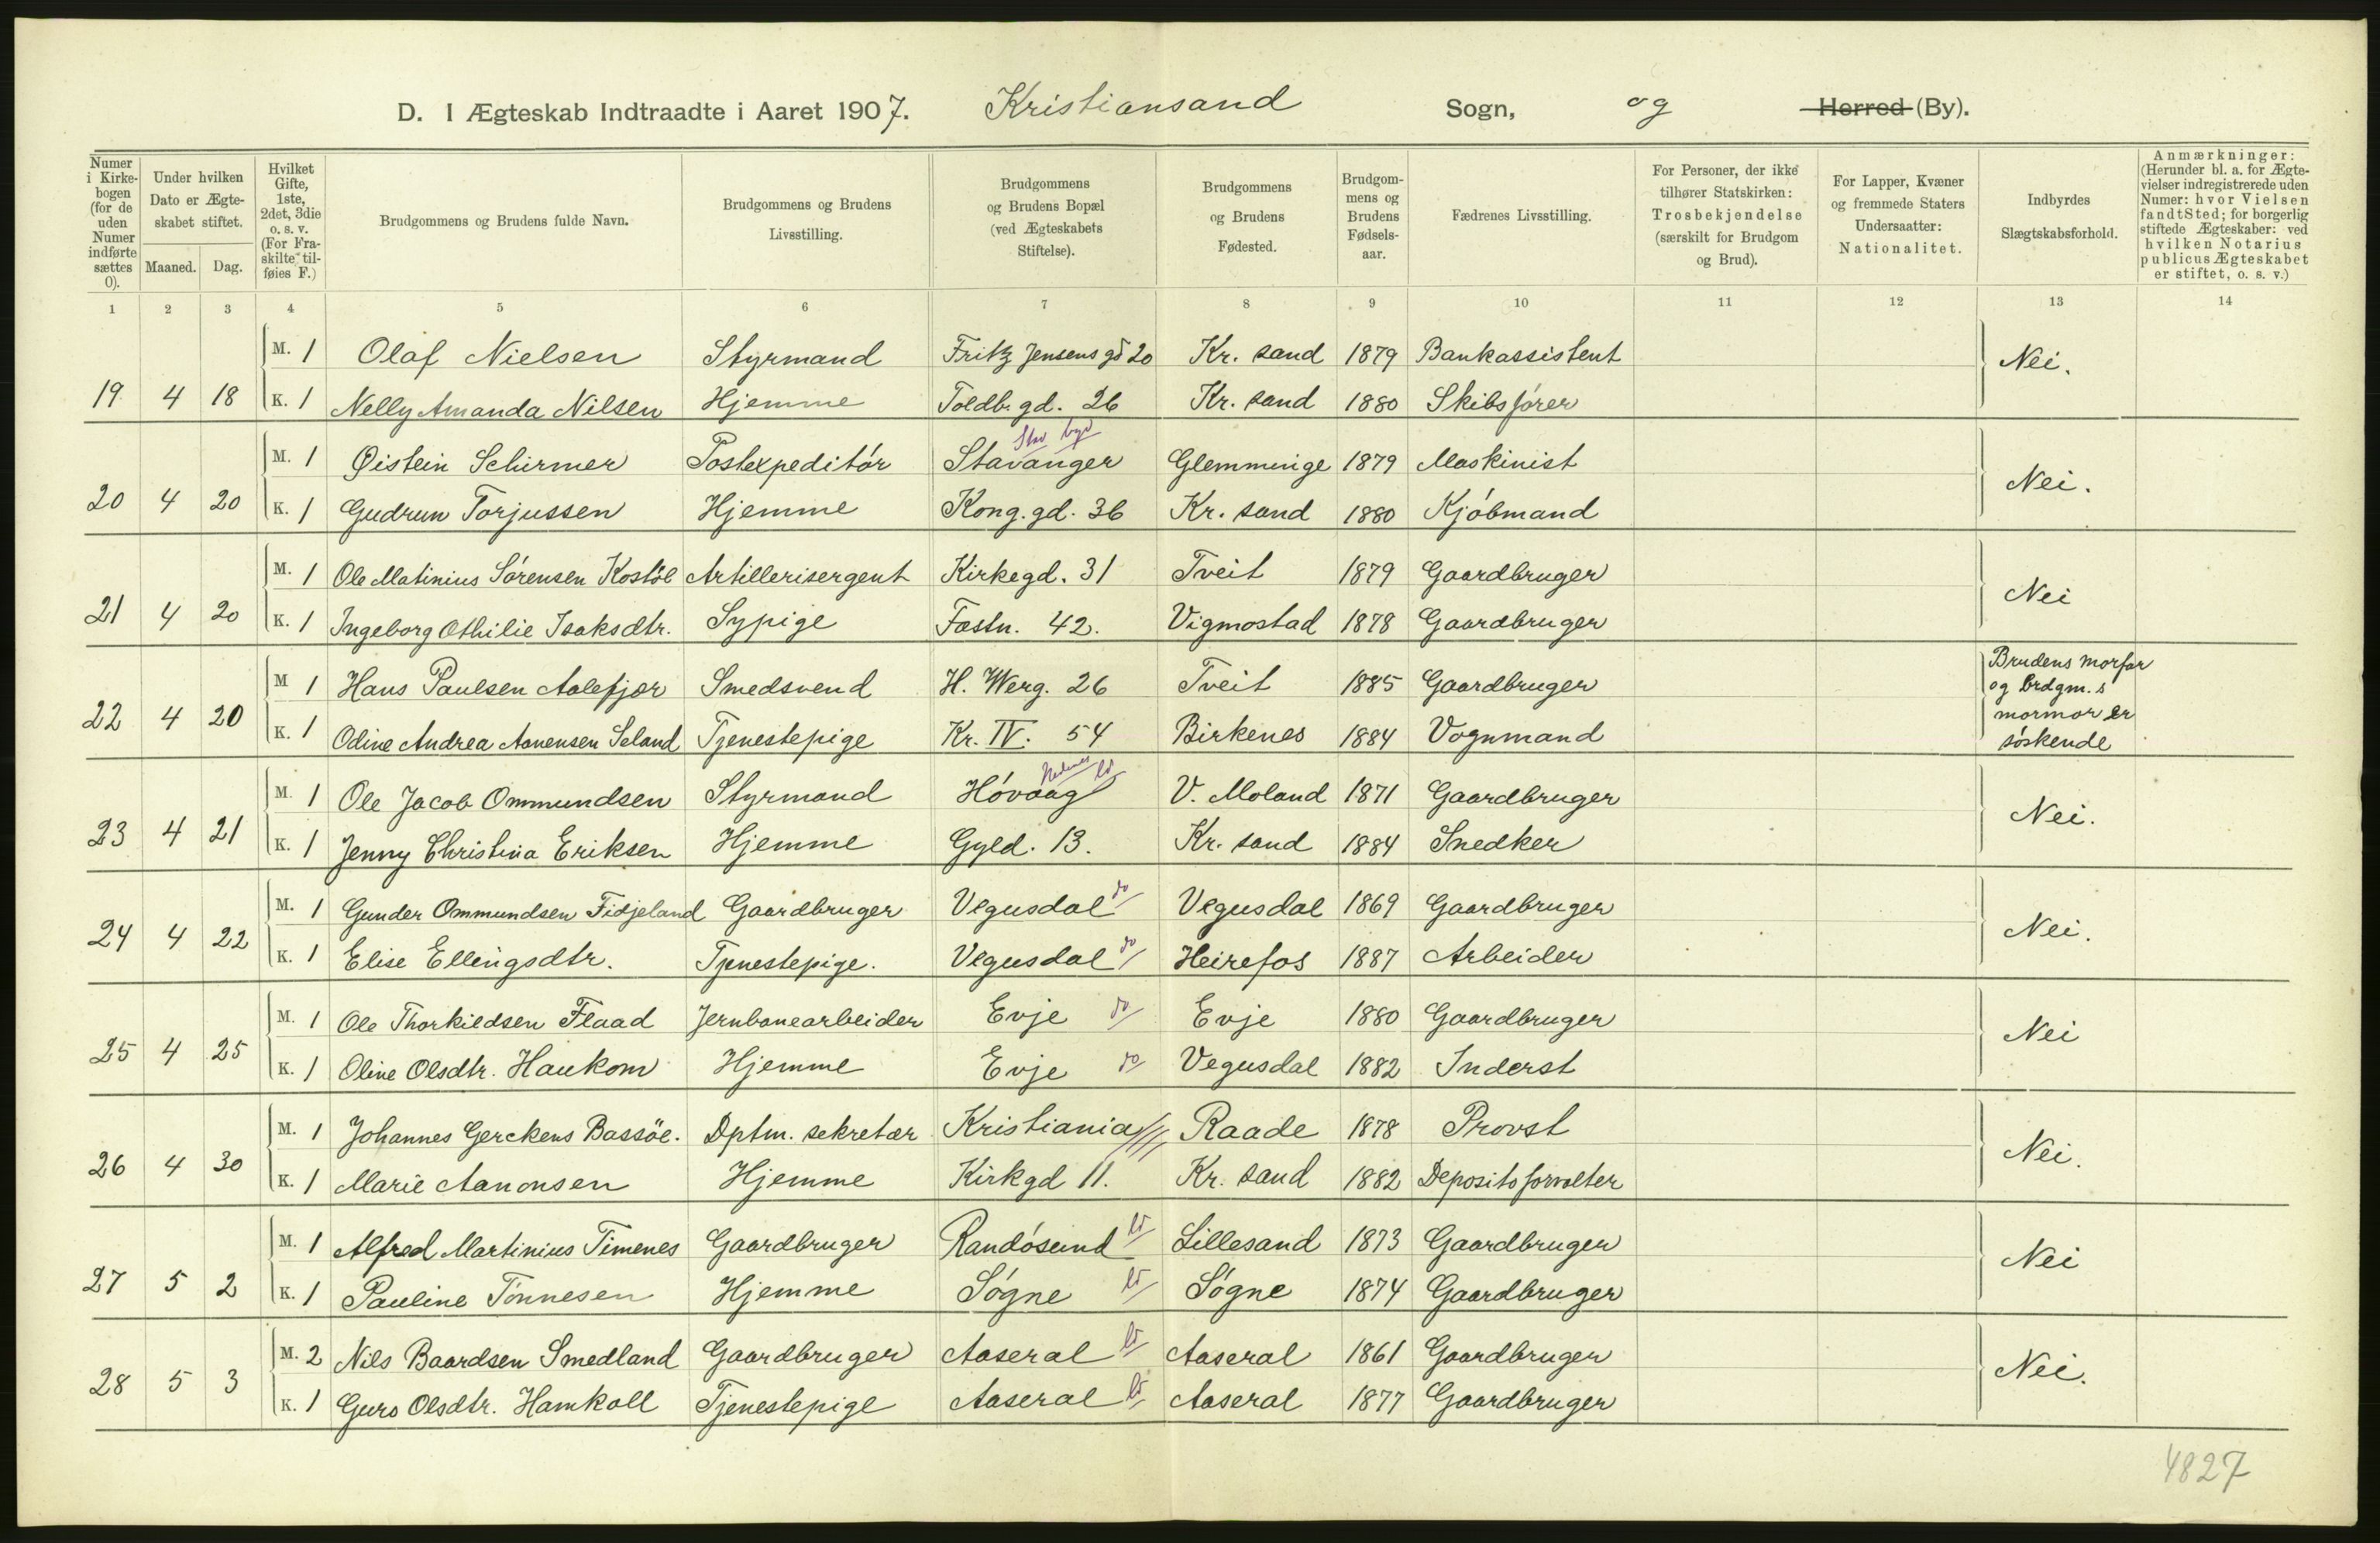 D. I Ægteskab Indtraadte i Aaret 1907. Kristiansand Sogn, og Herred (By).
Numer i Kirkebogen (for de uden Numer indførte sættes 0).
Under hvilken Dato er Ægteskabet stiftet.
Maaned. Dag.
Hvilket Gifte, 1ste, 2det, 3die o. s. v. (For Fraskilte tilføies F.)
Brudgommens og Brudens fulde Navn.
Brudgommens og Brudens Livsstilling.
Brudgommens og Brudens Bopæl (ved Ægteskabets Stiftelse).
Brudgommens og Brudens Fødested.
Brudgommens og Brudens Fødselsaar.
Fædrenes Livsstilling.
For Personer, der ikke tilhører Statskirken: Trosbekjendelse (særskilt for Brudgom og Brud).
For Lapper, Kvæner og fremmede Staters Undersaatter: Nationalitet.
Indbyrdes Slægtskabsforhold.
Anmærkninger: (Herunder bl. a. for Ægtevielser indregistrerede uden Numer: hvor Vielsen fandt Sted; for borgerlig stiftede Ægteskaber: ved hvilken Notarius publicus Ægteskabet er stiftet, o. s. v.)
1 2 3 4 5 6 7 8 9 10 11 12 13 14
M. 1 Olaf Nielsen Styrmand Fritz Jensens gd 20 Kr. sand 1879 Bankassistent Nei.
19 4 18 K. 1 Nelly Amanda Nilsen Hjemme Toldb. gd. 26 Kr. sand 1880 Skibsfører
M. 1 Øistein Schirmer Postexpeditør Stavanger Glemminge 1879 Maskinist Nei.
20 4 20 K. 1 Gudrun Torjussen Hjemme Kong. gd. 36 Kr. sand 1880 Kjøbmand
M. 1 Ole Matinius Sørensen Kostøl Artillerisergent Kirkegd. 31 Tveit 1879 Gaardbruger Nei
21 4 20 K. 1 Ingeborg Othilie Isaksdtr. Sypige Fæstn. 42. Vigmostad 1878 Gaardbruger
M 1 Hans Paulsen Aalefjær Smedsvend H. Werg. 26 Tveit 1885 Gaardbruger Brudens morfar og brdgm.s
22 4 20 K. 1 Odine Andrea Aanensen Seland Tjenestepige Kr. IV. 54 Birkenes 1884 Vognmand mormor er søskende
M. 1 Ole Jacob Ommundsen Styrmand Høvaag V. Moland 1871 Gaardbruger Nei.
23 4 21 K. 1 Jenny Christina Eriksen Hjemme Gyld. 13. Kr. sand 1884 Snedker
M. 1 Gunder Ommundsen Fidjeland Gaardbruger Vegusdal do Vegusdal 1869 Gaardbruger Nei.
24 4 22 K. 1 Elise Ellingsdtr. Tjenestepige. Vegusdal do Heirefos 1887 Arbeider
M. 1 Ole Thorkildsen Flaad Jernbanearbeider Evje do Evje 1880 Gaardbruger Nei
25 4 25 K. 1 Oline Olsdtr. Haukom Hjemme Evje do Vegusdal 1882 Inderst
M. 1 Johannes Gerckens Bassøe. Dptm. sekretær Kristiania Raade 1878 Provst Nei.
26 4 30 K. 1 Marie Aanonsen Hjemme Kirkgd 11. Kr. sand 1882 Depositoforvalter
M. 1 Alfred Martinius Timenes Gaardbruger Randøsund Lillesand 1873 Gaardbruger Nei
27 5 2 K. 1 Pauline Tønnesen Hjemme Søgne Søgne 1874 Gaardbruger
M. 2 Nils Baardsen Smedland Gaardbruger Aaseral Aaseral 1861 Gaardbruger Nei.
28 5 3 K. 1 Guro Olsdtr. Hamkoll Tjenestepige Aaseral Aaseral 1877 Gaardbruger
4827